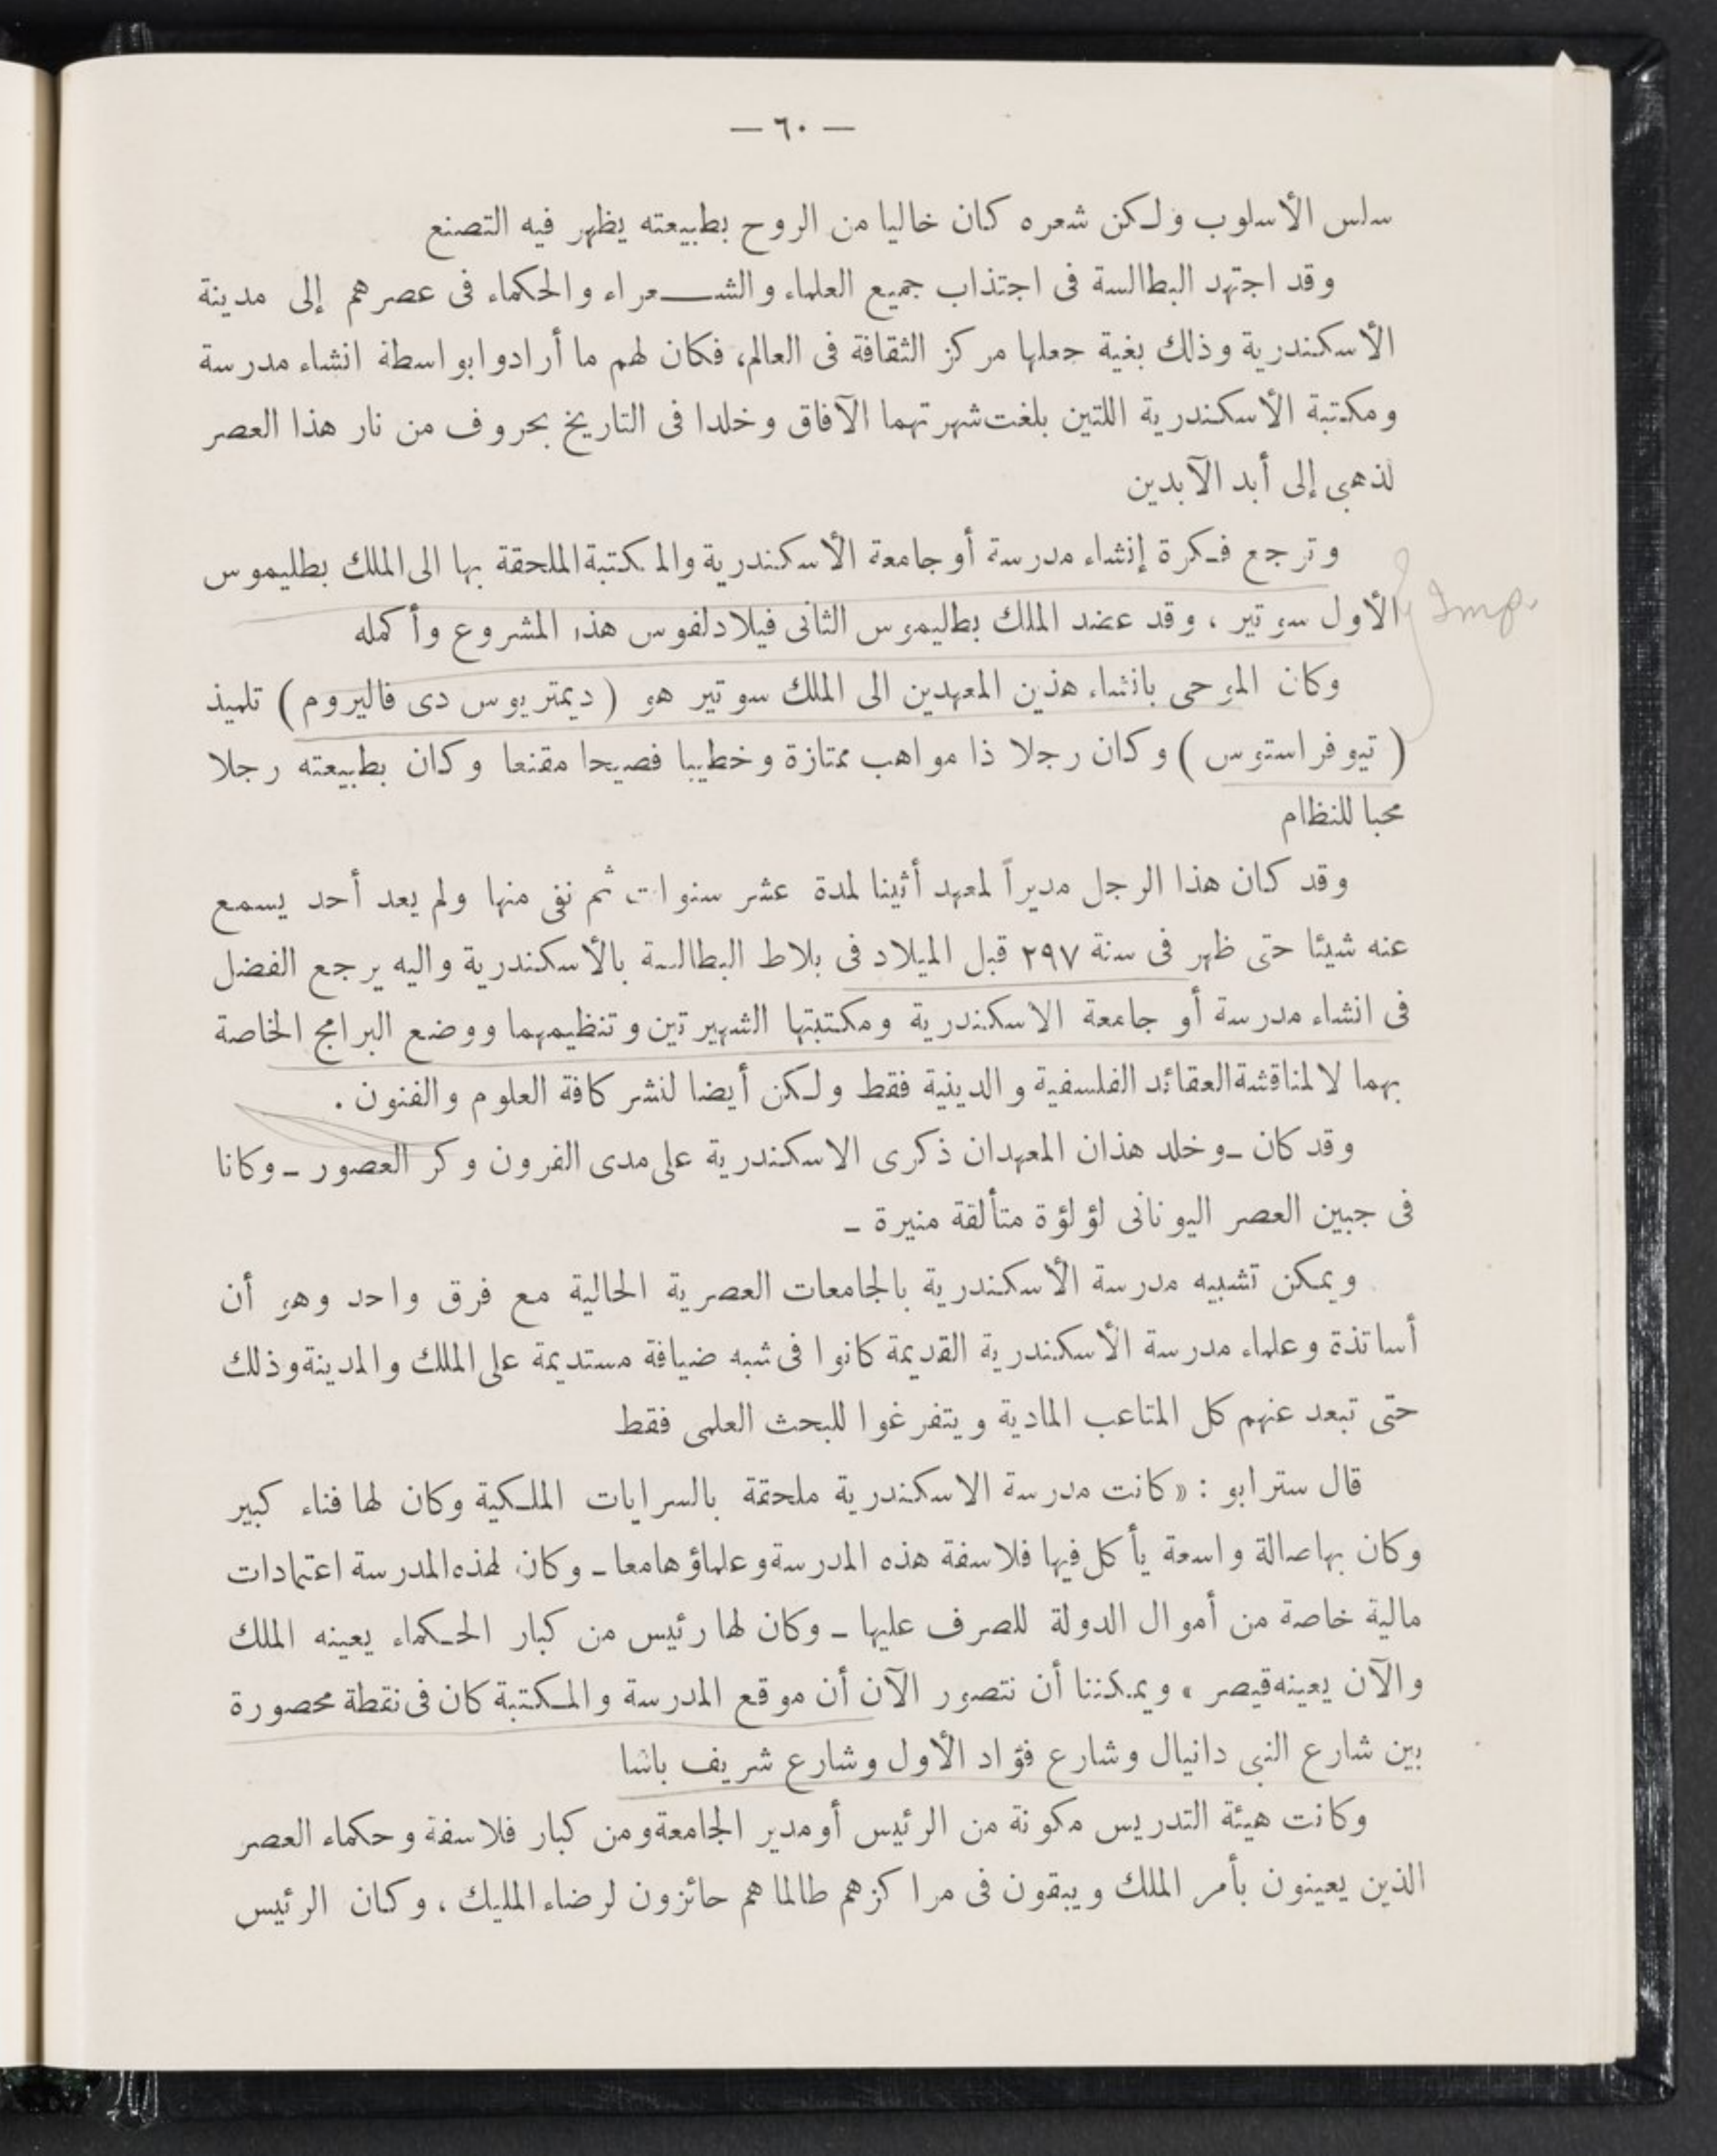 — ٦٠ —
سلس الأسلوب ولكن شعره كان خاليا من الروح بطبيعته يظهر فيه التصنع
وقد اجتهد البطالسة فى اجتذاب جميع العلماء والشعراء والحكماء فى عصرهم إلى مدينة
الأسكندرية وذلك بغية جعلها مركز الثقافة فى العالم، فكان لهم ما أرادوا بواسطة انشاء مدرسة
ومكتبة الأسكندرية اللتين بلغت شهرتهما الآفاق وخلدا فى التاريخ بحروف من نار هذا العصر
لذهبى إلى أبد الآبدين
وترجع فكرة إنشاء مدرسة أو جامعة الأسكندرية والمكتبة الملحقة بها الى الملك بطليموس
الأول سوتير ، وقد عضد الملك بطليموس الثانى فيلادلفوس هذا المشروع وأكمله
Imp.
وكان الموحى بانشاء هذين المعهدين الى الملك سوتير هو ( ديمتريوس دى فاليروم ) تلميذ
( تيوفراستوس ) وكان رجلا ذا مواهب ممتازة وخطيبا فصيحا مقنعا وكان بطبيعته رجلا
محبا للنظام
وقد كان هذا الرجل مديراً لمعهد أثينا لمدة عشر سنوات ثم نفى منها ولم يعد أحد يسمع
عنه شيئا حتى ظهر فى سنة ٢٩٧ قبل الميلاد فى بلاط البطالسة بالأسكندرية واليه يرجع الفضل
فى انشاء مدرسة أو جامعة الاسكندرية ومكتبتها الشهيرتين وتنظيمهما ووضع البرامج الخاصة
بهما لا لمناقشة العقائد الفلسفية والدينية فقط ولكن أيضا لنشر كافة العلوم والفنون .
وقد كان ــ وخلد هذان المعهدان ذكرى الاسكندرية على مدى القرون وكر العصور ــ وكانا
فى جبين العصر اليونانى لؤلؤة متألقة منيرة ــ
ويمكن تشبيه مدرسة الأسكندرية بالجامعات العصرية الحالية مع فرق واحد وهو أن
أساتذة وعلماء مدرسة الأسكندرية القديمة كانوا فى شبه ضيافة مستديمة على الملك والمدينة وذلك
حتى تبعد عنهم كل المتاعب المادية ويتفرغوا للبحث العلمى فقط
قال سترابو : « كانت مدرسة الاسكندرية ملحقة بالسرايات الملكية وكان لها فناء كبير
وكان بها صالة واسعة يأكل فيها فلاسفة هذه المدرسة وعلماؤها معا ــ وكان لهذه المدرسة اعتمادات
مالية خاصة من أموال الدولة للصرف عليها ــ وكان لها رئيس من كبار الحكماء يعينه الملك
والآن يعينه قيصر » ويمكننا أن نتصور الآن أن موقع المدرسة والمكتبة كان فى نقطة محصورة
بين شارع النبى دانيال وشارع فؤاد الأول وشارع شريف باشا
وكانت هيئة التدريس مكونة من الرئيس أو مدير الجامعة ومن كبار فلاسفة وحكماء العصر
الذين يعينون بأمر الملك ويبقون فى مراكزهم طالما هم حائزون لرضاء المليك ، وكان الرئيس